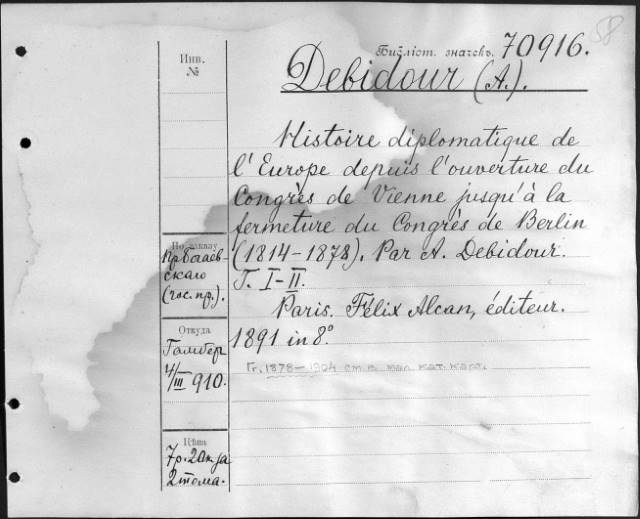 58
Библіот. значекъ. 70916.
Инв.
№
Debidour (A.).
Histoire diplomatique de
l'Europe depuis l'ouverture du
Congrès de Vienne jusqu'à la
fermeture du Congrès de Berlin
(1814-1878). Par A. Debidour.
T. I-II.
Paris. Félix Alcan, éditeur.
1891 in 8°
Гг. 1878-1904 см. в мал. кат. карт.
По заказу
скаго
(гос. пр.).
Откуда
4/III 910.
Цѣна
7 р. 20 к. за
2 тома.